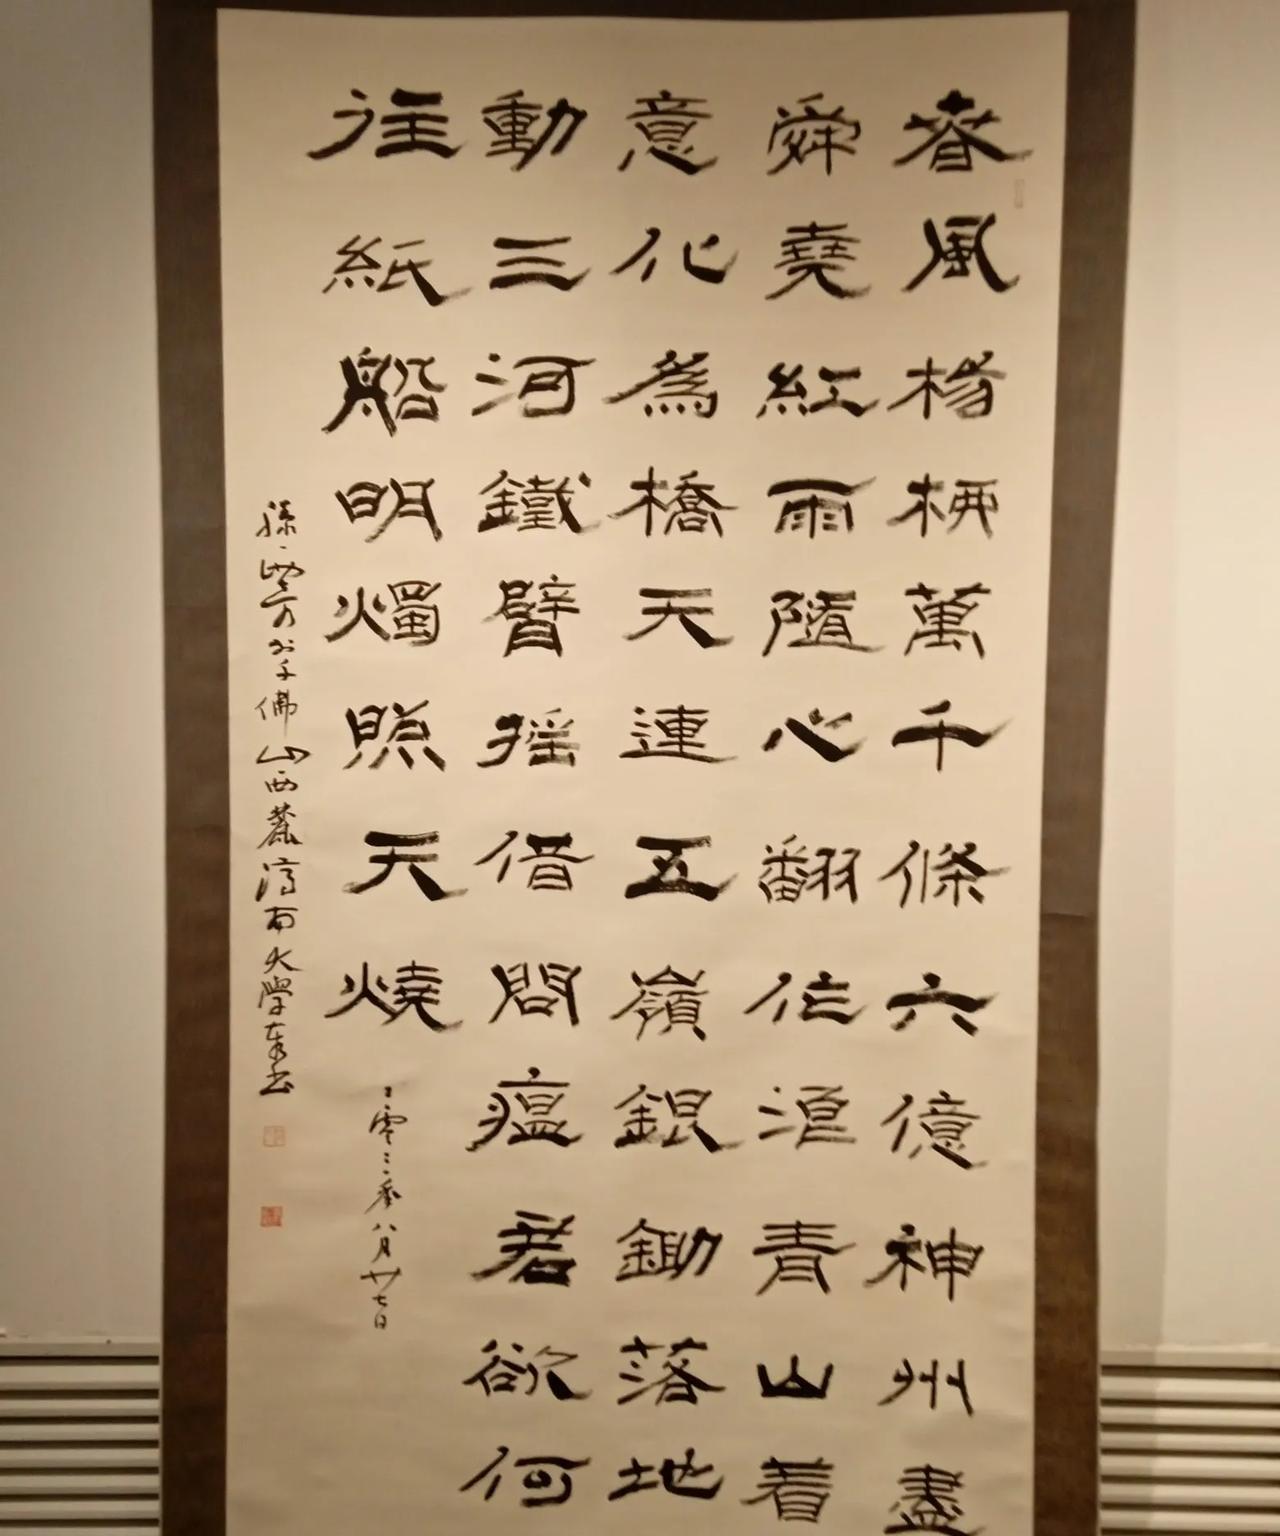 春風楊柳萬千條六億神州盡
舜堯紅雨隨心翻作浪青山着
意化為橋天連五嶺銀鋤落地
動三河鐵臂搖借問瘟君欲何
往紙船明燭照天燒
二零二零年八月廿七日
於千佛山西麓濟南大學奉書